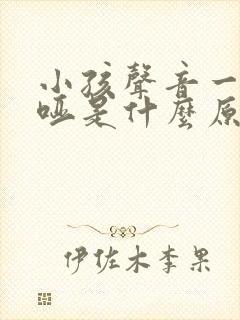 小孩聲音一
啞是什麼原
伊佐木李果